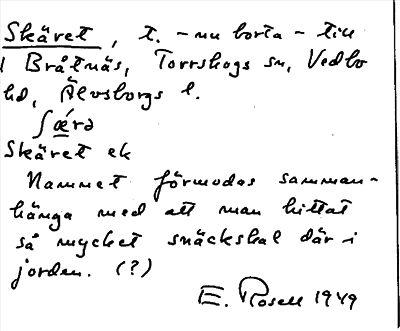 Skäret, t. - nu borta - till
1 Bråtnäs, Torrskogs sn, Vedbo
hd, Älvsborgs l.
ʃæ̀rə
Skäret ek
Namnet förmodas samman-
hänga med att man hittat
så mycket snäckskal där i
jorden. (?)
E. Rosell 1949